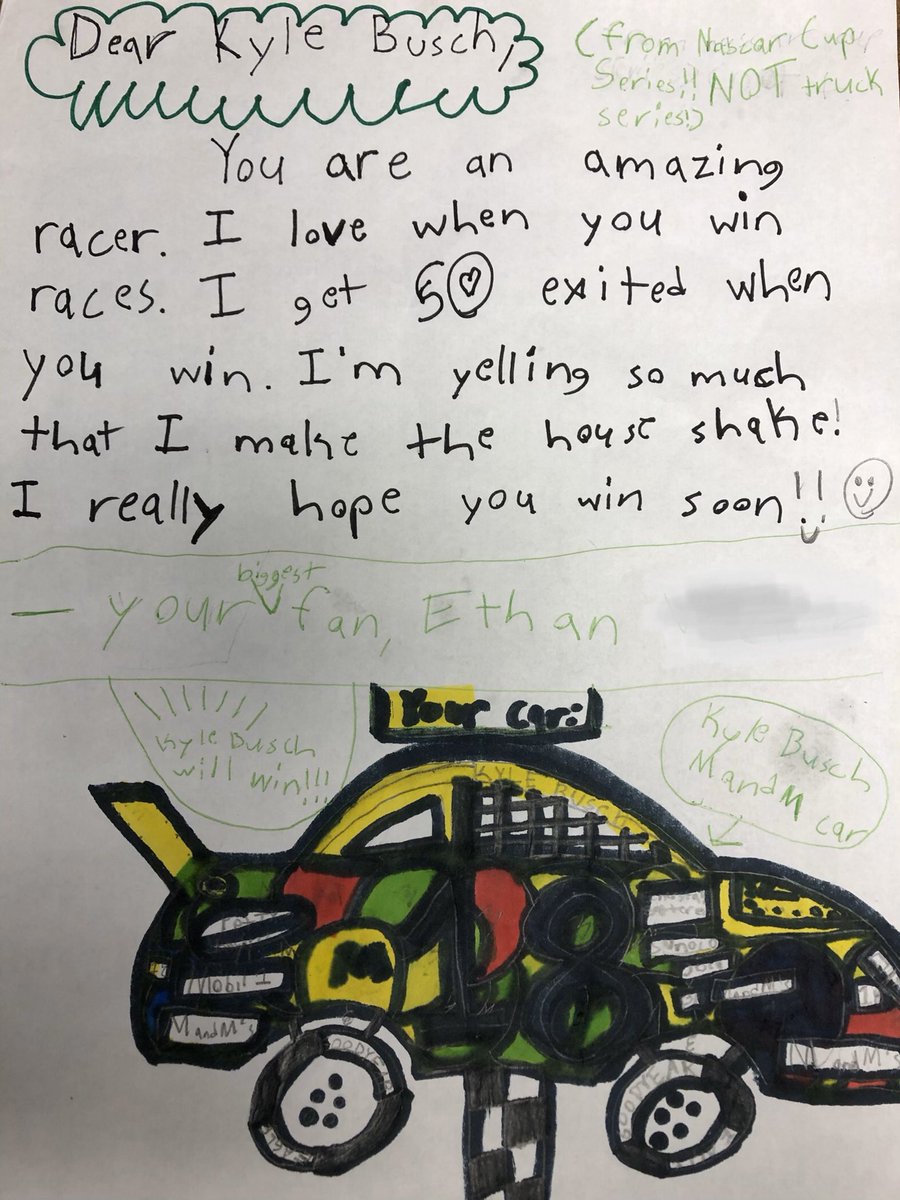 Dear Kyle Busch,
(from Nascar Cup
Series!! NOT truck
series!)
You are an amazing
racer. I love when you win
races. I get SO exited when
you win. I'm yelling so much
that I make the house shake!
I really hope you win soon!!
— your biggest fan, Ethan
Kyle Busch
will win!!!
Your car:
Kyle Busch
MandM
car
KYLE BUSCH
18
M
Mobil 1
MandM's
MandM's
MandM's
GOODYEAR
GOODYEAR